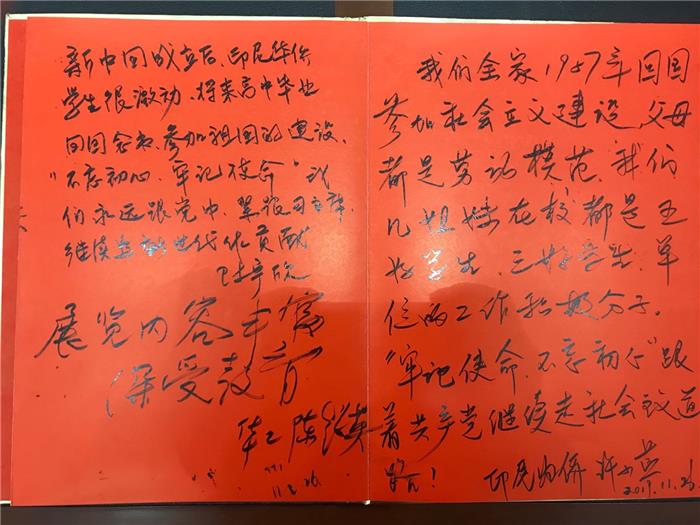 新中国成立后、印尼华侨
学生很激动、将来高中毕业
回国念书参加祖国的建设、
"不忘初心、牢记使命"我
们永远跟党中、习主席、
继续为新时代作贡献
展览内容丰富
深受教育
华工 陈
11.26
我们全家1957年回国
参加社会主义建设、父母
都是劳动模范、我们
几姐妹在校都是五
好学生、三好学生、单
位的工作积极分子、
"牢记使命、不忘初心"跟
着共产党继续走社会主义道
路!
印尼归侨 许
2019.11.26.